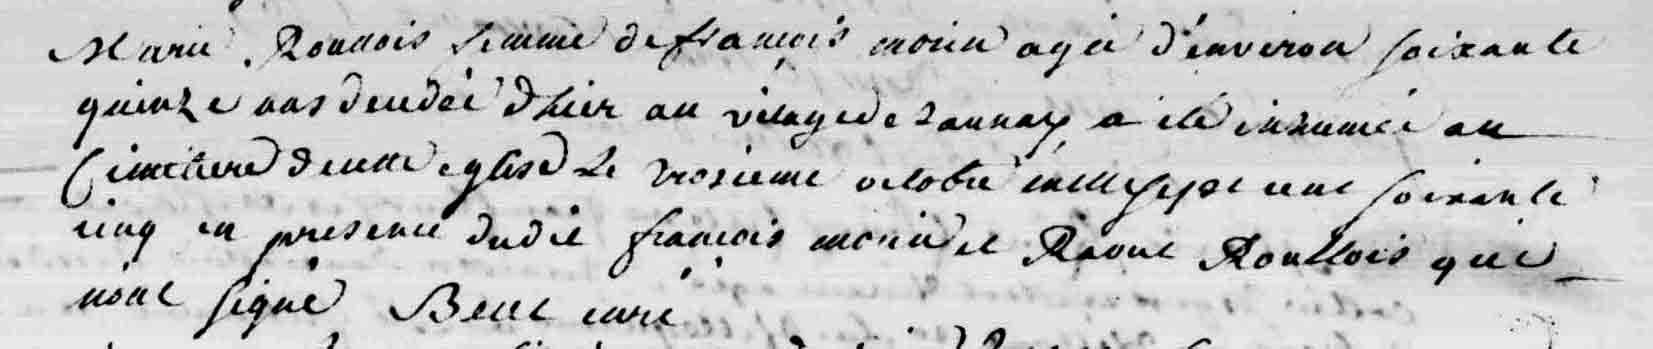 Marie Roullois femme de francois morin agée d'environ soixante
quinze ans decedée d'hier au vilage de Launay a été inhumée au
Cimetiere de cette eglise le troisieme octobre mille sept cent soixante
cinq en presence dudit francois morin et Raoul Roullois qui
n'ont signé Belet curé